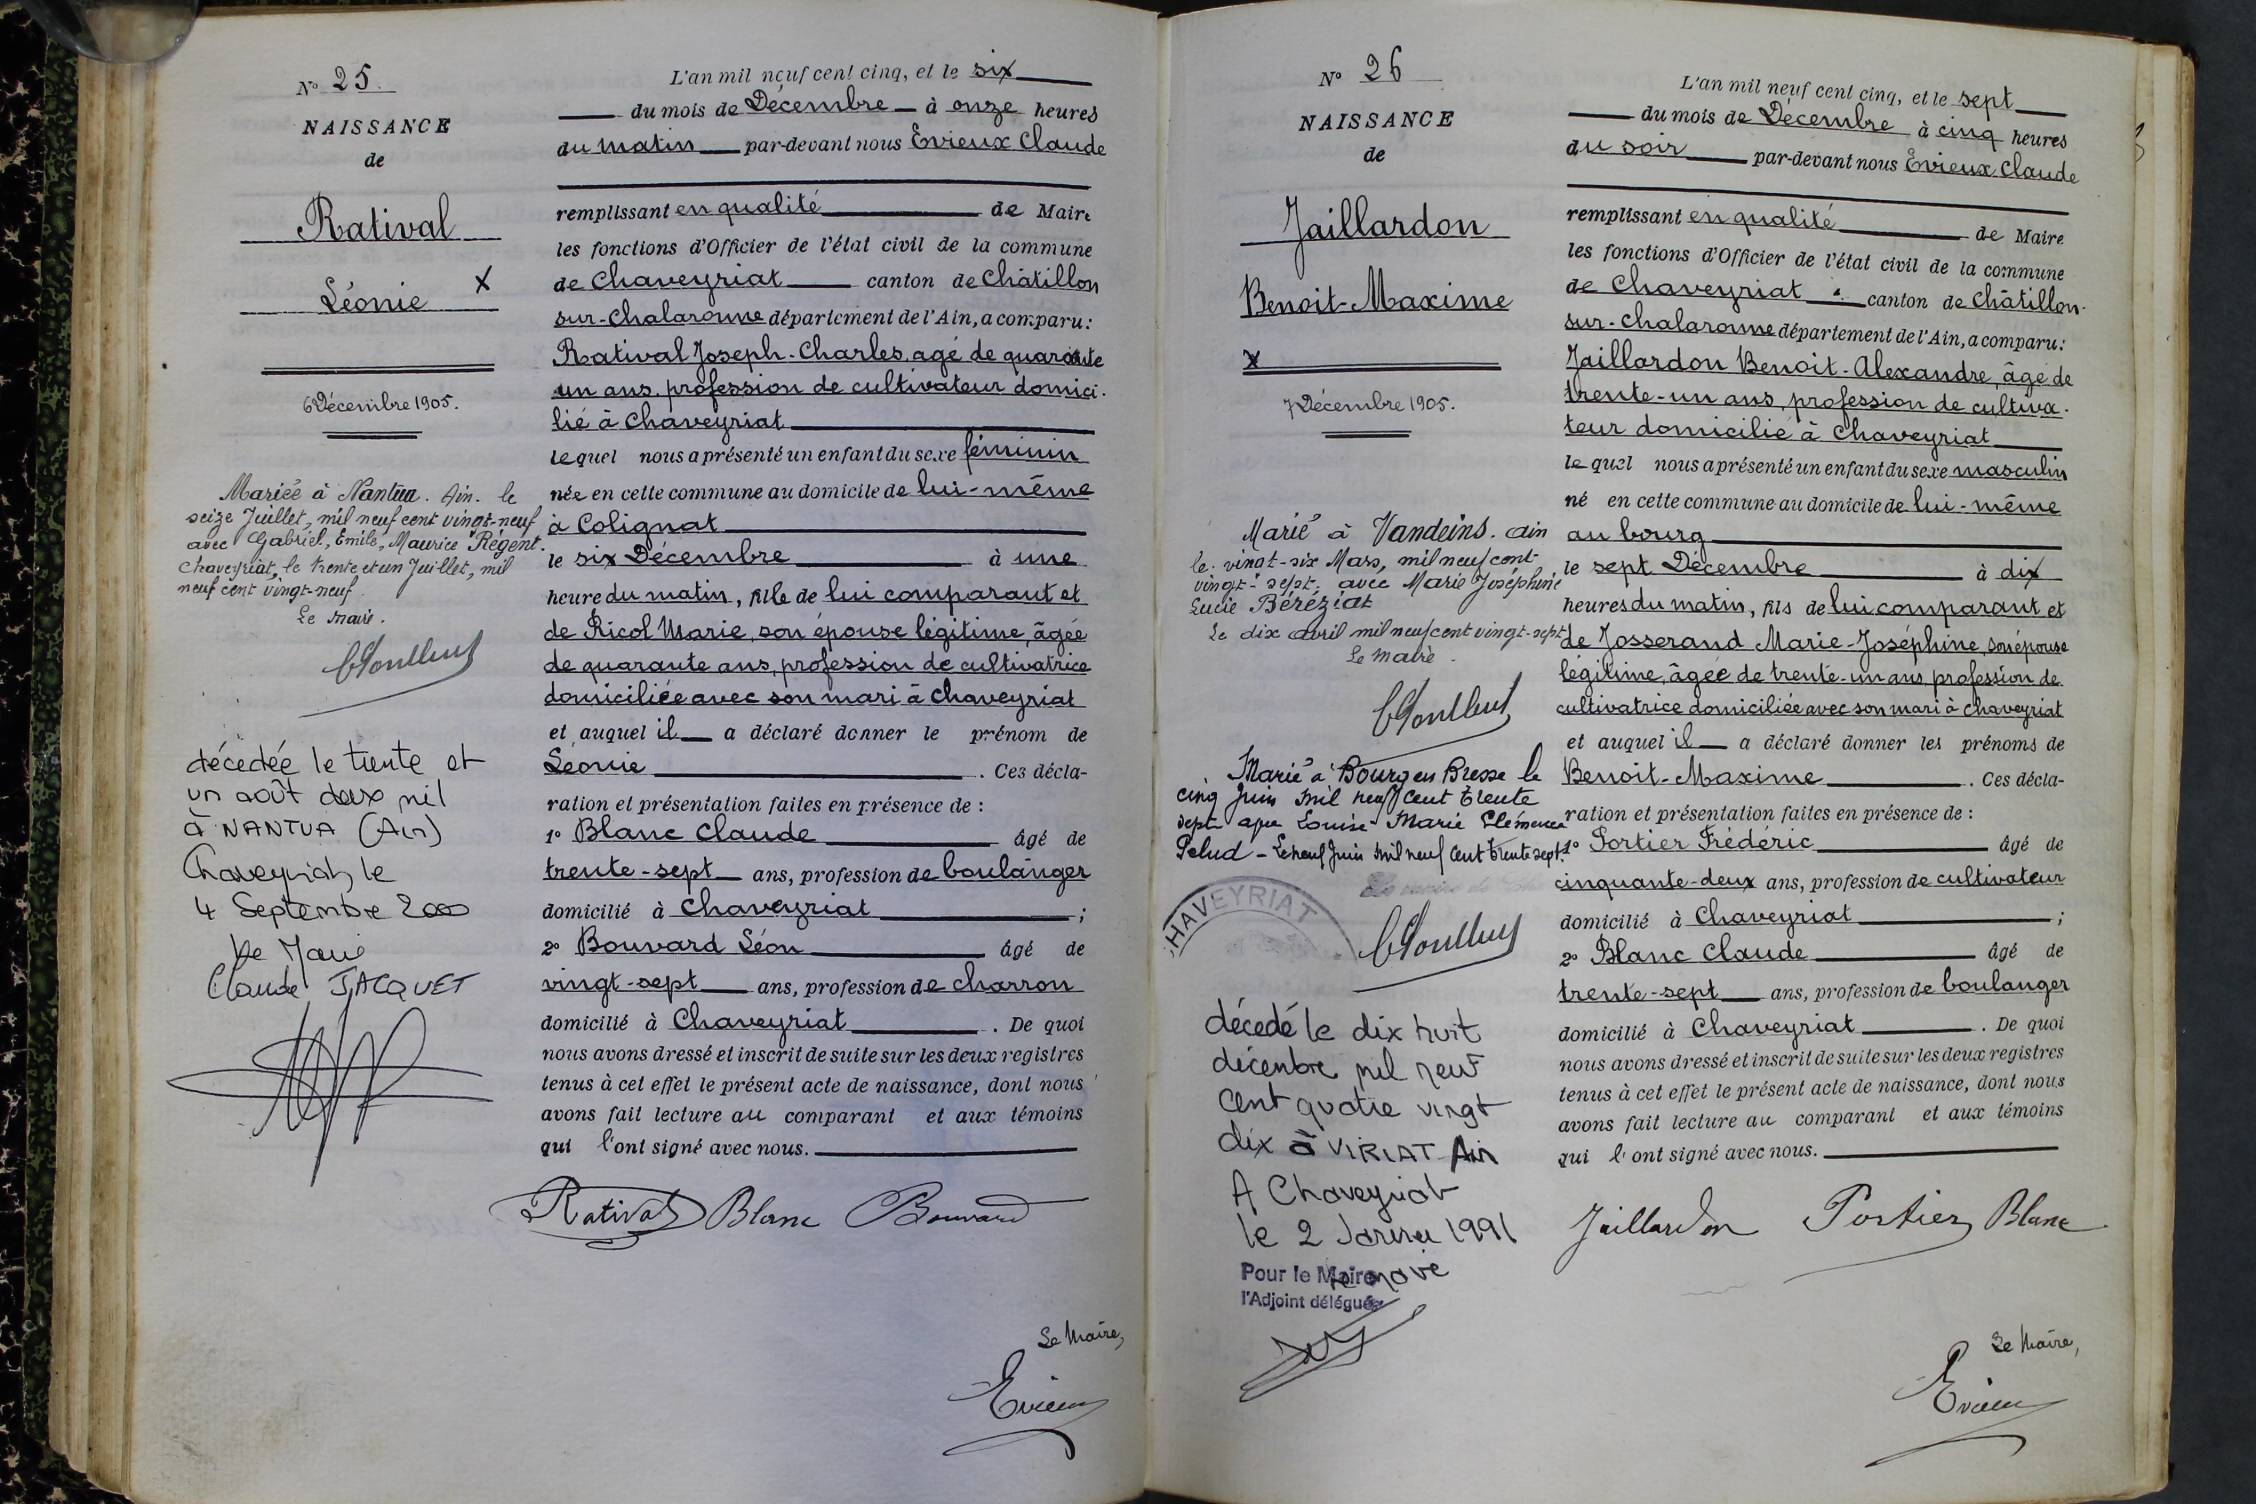 N° 25.
NAISSANCE
de
Ratival
Léonie X
6 Décembre 1905.
Mariée à Nantua. Ain. le
seize Juillet, mil neuf cent vingt-neuf
avec Gabriel, Emile, Maurice Régent.
Chaveyriat, le trente et un Juillet, mil
neuf cent vingt-neuf
Le maire.
décédée le trente et
un août deux mil
à NANTUA (Ain)
Chaveyriat, le
4 Septembre 2000
Le Maire
Claude JACQUET
L'an mil neuf cent cinq, et le six
du mois de Décembre à onze heures
du matin par-devant nous Evieux Claude
remplissant en qualité de Maire
les fonctions d'Officier de l'état civil de la commune
de Chaveyriat canton de Châtillon
sur-Chalaronne département de l'Ain, a comparu:
Ratival Joseph-Charles, agé de quarante
un ans, profession de cultivateur domici-
lié à Chaveyriat
lequel nous a présenté un enfant du sexe féminin
née en cette commune au domicile de lui-même
à Colignat
le six Décembre à une
heure du matin, fille de lui comparant et
de Ricol Marie, son épouse légitime, âgée
de quarante ans, profession de cultivatrice
domiciliée avec son mari à Chaveyriat
et auquel il a déclaré donner le prénom de
Léonie. Ces décla-
ration et présentation faites en présence de :
1° Blanc Claude âgé de
trente-sept ans, profession de boulanger
domicilié à Chaveyriat ;
2° Bouvard Léon âgé de
vingt-sept ans, profession de charron
domicilié à Chaveyriat. De quoi
nous avons dressé et inscrit de suite sur les deux registres
tenus à cet effet le présent acte de naissance, dont nous
avons fait lecture au comparant et aux témoins
qui l'ont signé avec nous.
Ratival Blanc Bouvard
Le Maire,
Evieux
N° 26
NAISSANCE
de
Jaillardon
Benoit-Maxime
X
7 Décembre 1905.
Marié à Vandeins. Ain
le vingt-six Mars, mil neuf cent
vingt-sept, avec Marie Joséphine
Lucie Béréziat
Le dix avril mil neuf cent vingt-sept
Le maire.
Marié à Bourg en Bresse le
cinq Juin mil neuf cent trente
sept avec Louise Marie Clémence
Pelud - Le neuf Juin mil neuf cent trente sept.
CHAVEYRIAT
décédé le dix huit
décembre mil neuf
cent quatre vingt
dix à VIRIAT Ain
A Chaveyriat
le 2 Janvier 1991
le Maire
Pour le Maire
l'Adjoint délégué
L'an mil neuf cent cinq, et le sept
du mois de Décembre à cinq heures
du soir par-devant nous Evieux Claude
remplissant en qualité de Maire
les fonctions d'Officier de l'état civil de la commune
de Chaveyriat canton de Châtillon-
sur-Chalaronne département de l'Ain, a comparu:
Jaillardon Benoit-Alexandre, âgé de
trente-un ans, profession de cultiva-
teur domicilié à Chaveyriat
lequel nous a présenté un enfant du sexe masculin
né en cette commune au domicile de lui-même
au bourg
le sept Décembre à dix
heures du matin, fils de lui comparant et
de Josserand Marie-Joséphine, son épouse
légitime, âgée de trente-un ans, profession de
cultivatrice domiciliée avec son mari à Chaveyriat
et auquel il a déclaré donner les prénoms de
Benoit-Maxime. Ces décla-
ration et présentation faites en présence de :
1° Portier Frédéric âgé de
cinquante-deux ans, profession de cultivateur
domicilié à Chaveyriat ;
2° Blanc Claude âgé de
trente-sept ans, profession de boulanger
domicilié à Chaveyriat. De quoi
nous avons dressé et inscrit de suite sur les deux registres
tenus à cet effet le présent acte de naissance, dont nous
avons fait lecture au comparant et aux témoins
qui l'ont signé avec nous.
Jaillardon Portier Blanc
Le Maire,
Evieux